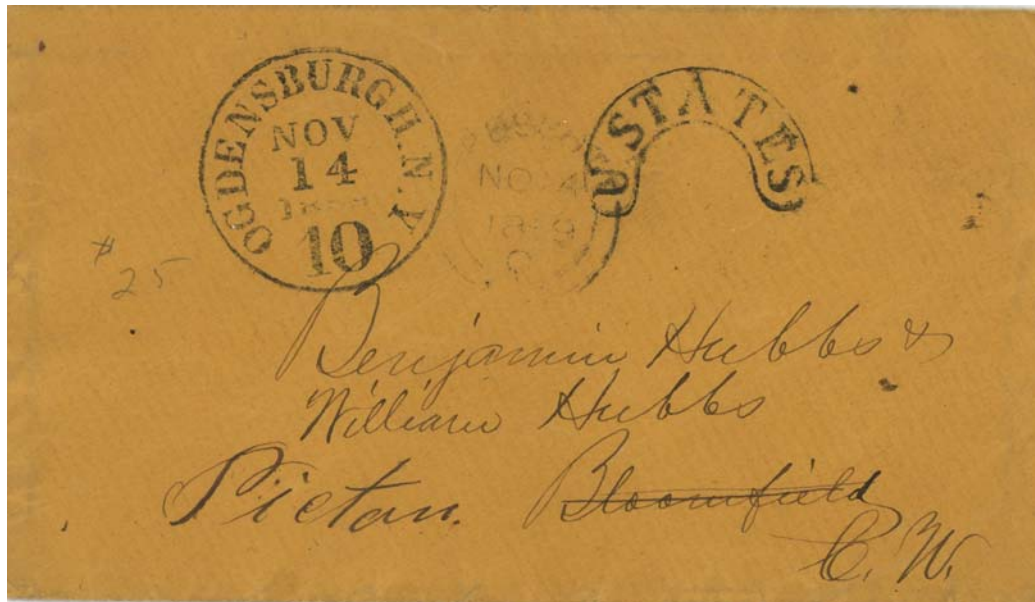 OGDENSBURGH. N. Y
NOV
14
10
U STATES
NO 4
18 9
$ 25
Benjamin Hubbs &
William Hubbs
Picton. Bloomfield
C. W.